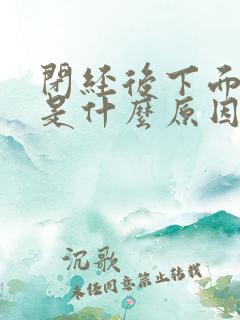 閉經後下面
是什麼原因
沉歌
未經同意禁止轉載